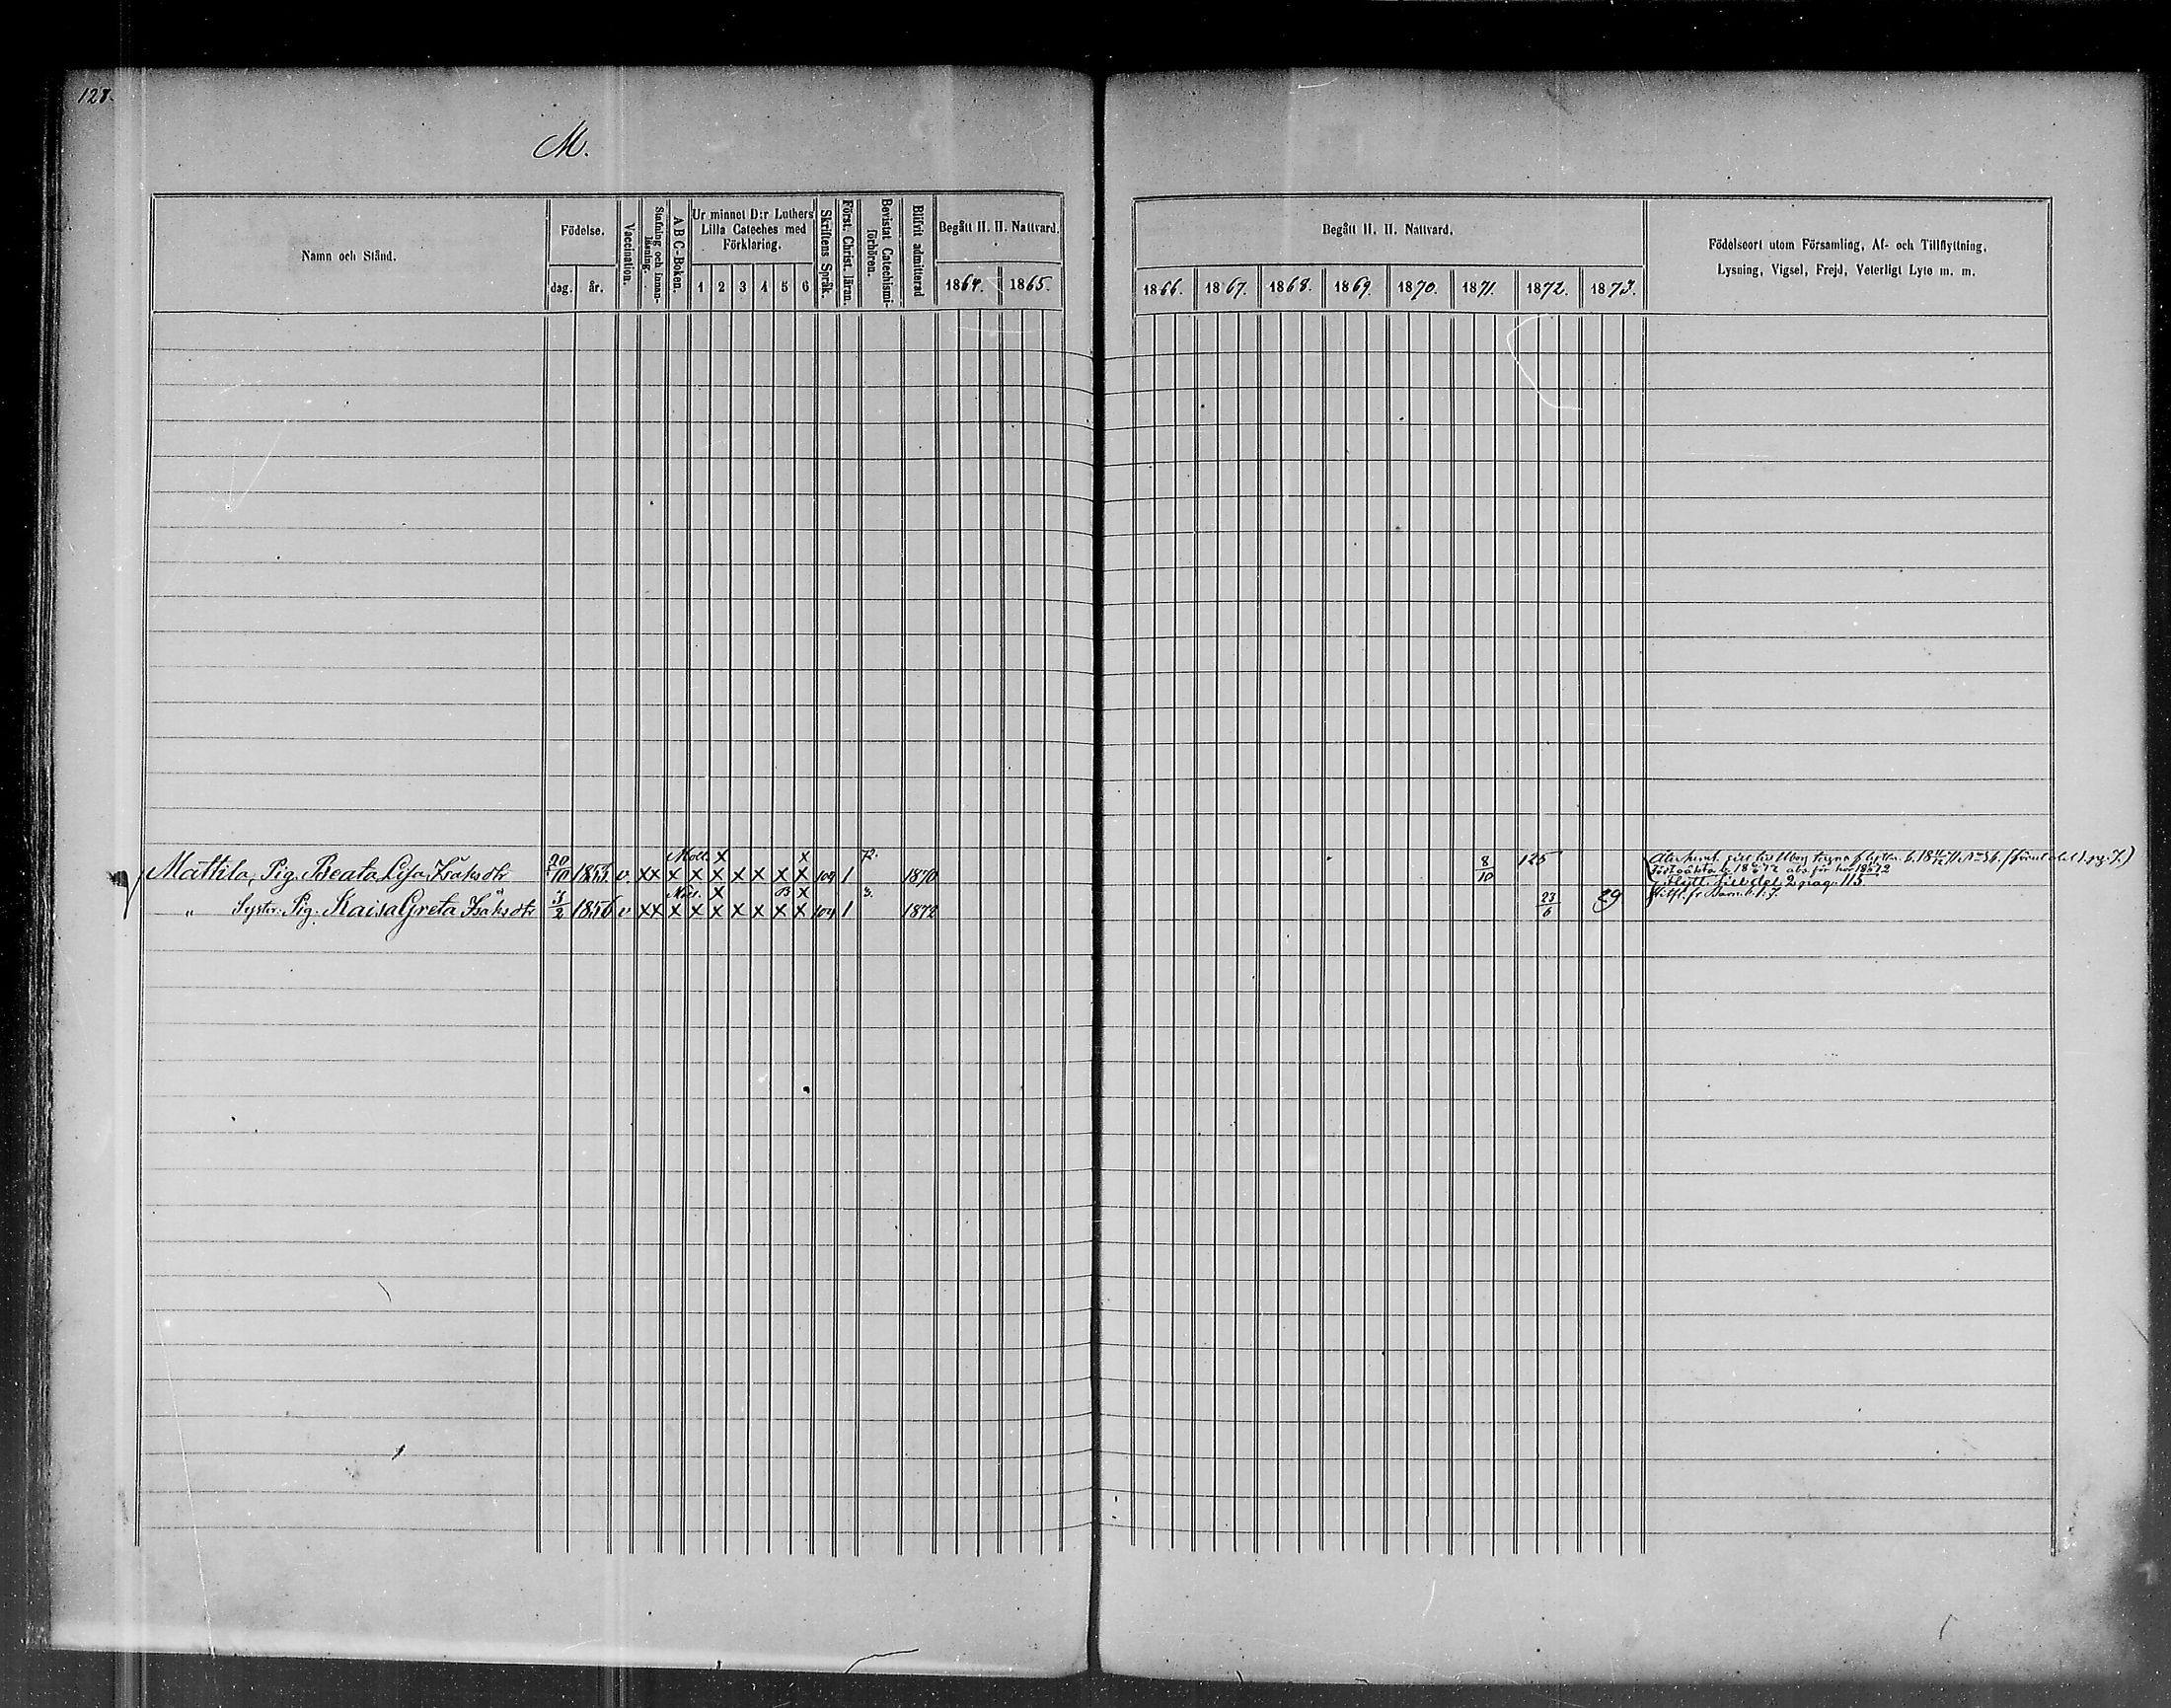 128.
M.
Namn och Stånd.
Födelse.
dag.
år.
Vaccination.
Stafning och innanläsning.
A B C-Boken.
Ur minnet D:r Luthers
Lilla Cateches med
Förklaring.
1 2 3 4 5 6
Skriftens Språk.
Först. Christ. läran.
Bevistat Catechismi-
förhören.
Blifvit admitterad
Begått H. H. Nattvard.
1864. 1865.
Begått H. H. Nattvard.
1866. 1867. 1868. 1869. 1870. 1871. 1872. 1873.
Födelseort utom Församling, Af- och Tillflyttning,
Lysning, Vigsel, Frejd, Veterligt Lyte m. m.
Mattila, Pig. Beata Lisa Isaksdtr 20/10 1853 v. x x x x x x x x x 104 1 72. 1870 8/10 125
flytt. till del. 2 pag. 115
" Syster. Pig. Kaisa Greta Isaksdtr 3/2 1856 v x x x x x x x x x 104 1 3. 1872 23/6 29